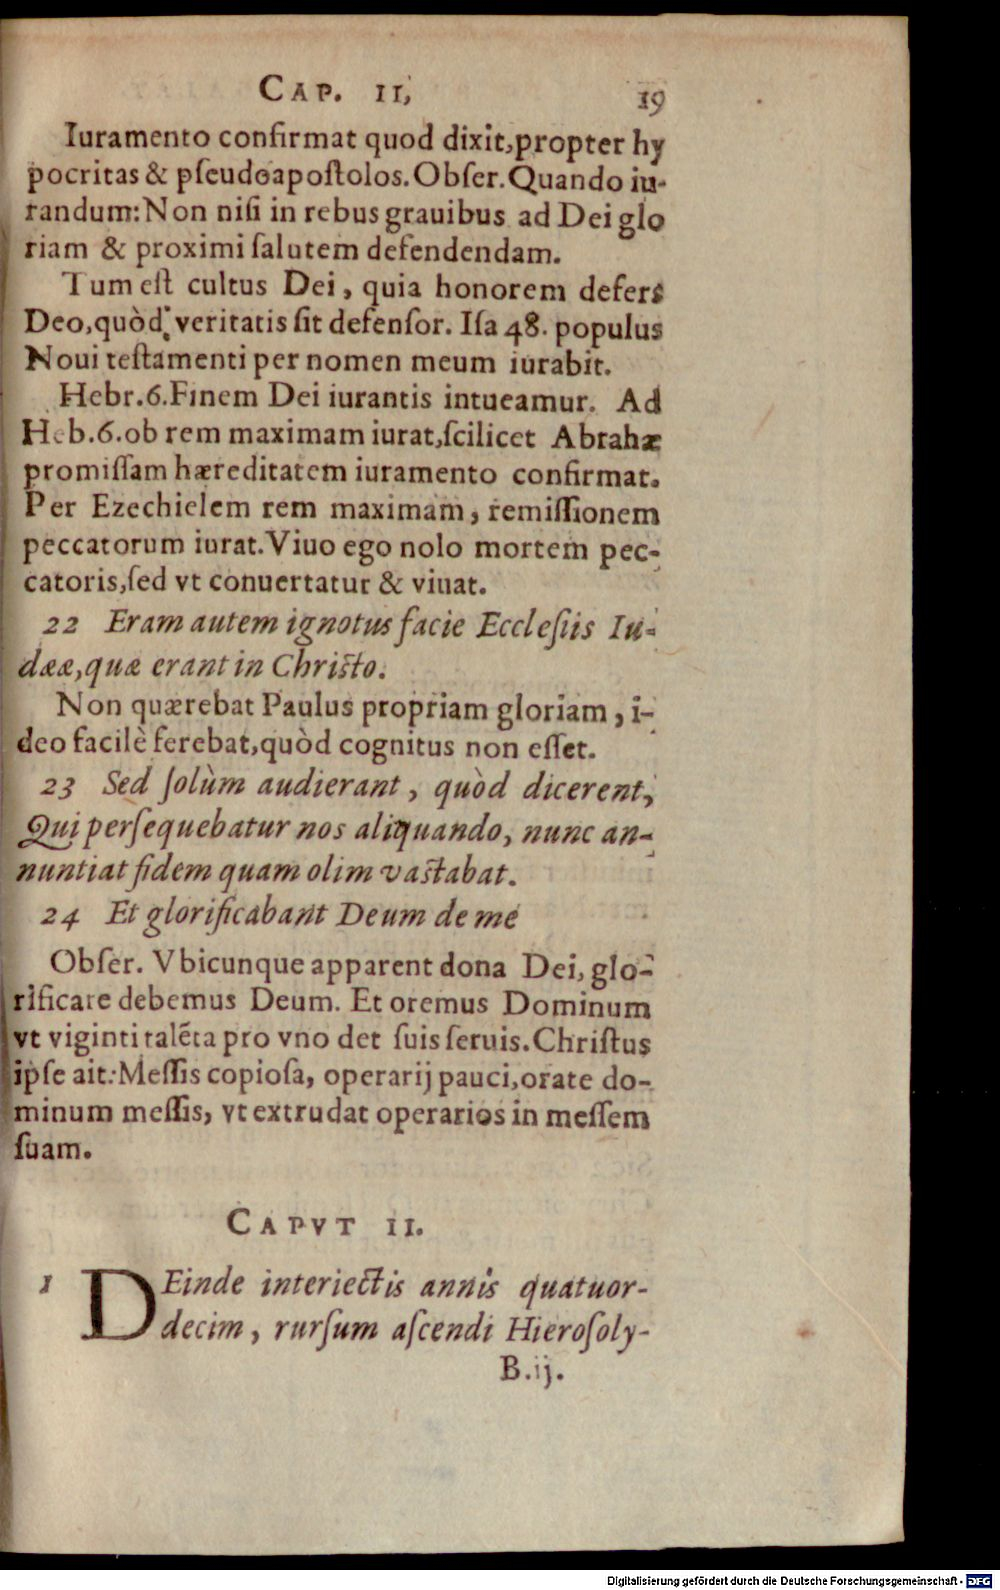 CAP. II,
19
Iuramento confirmat quod dixit, propter hy
pocritas & pſeudoapoſtolos. Obſer. Quando iu-
randum: Non niſi in rebus grauibus ad Dei glo
riam & proximi ſalutem defendendam.
Tum eſt cultus Dei, quia honorem defers
Deo, quòd veritatis ſit defenſor. Iſa 48. populus
Noui teſtamenti per nomen meum iurabit.
Hebr. 6. Finem Dei iurantis intueamur. Ad
Heb. 6. ob rem maximam iurat, ſcilicet Abrahæ
promiſſam hæreditatem iuramento confirmat.
Per Ezechielem rem maximam, remiſſionem
peccatorum iurat. Viuo ego nolo mortem pec-
catoris, ſed vt conuertatur & viuat.
22 Eram autem ignotus facie Eccleſiis Iu-
dææ, quæ erant in Chriſto.
Non quærebat Paulus propriam gloriam, i-
deo facilè ferebat, quòd cognitus non eſſet.
23 Sed ſolùm audierant, quòd dicerent,
Qui perſequebatur nos aliquando, nunc an-
nuntiat fidem quam olim vaſtabat.
24 Et glorificabant Deum de me
Obſer. Vbicunque apparent dona Dei, glo-
rificare debemus Deum. Et oremus Dominum
vt viginti talēta pro vno det ſuis ſeruis. Chriſtus
ipſe ait: Meſſis copioſa, operarij pauci, orate do-
minum meſſis, vt extrudat operarios in meſſem
ſuam.
CAPVT II.
1 DEinde interiectis annis quatuor-
decim, rurſum aſcendi Hieroſoly-
B.ij.
Digitalisierung gefördert durch die Deutsche Forschungsgemeinschaft - DFG